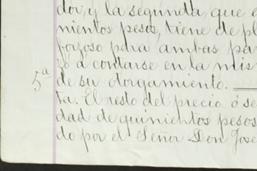 dor, y la segunda, que
mientos pesos, tiene de pl
forzoso para ambas pa
zo a contarse en la mis
de su otorgamiento.
5a
ta. El resto del precio ó se
dad de quinientos pesos
do por el Señor Don José